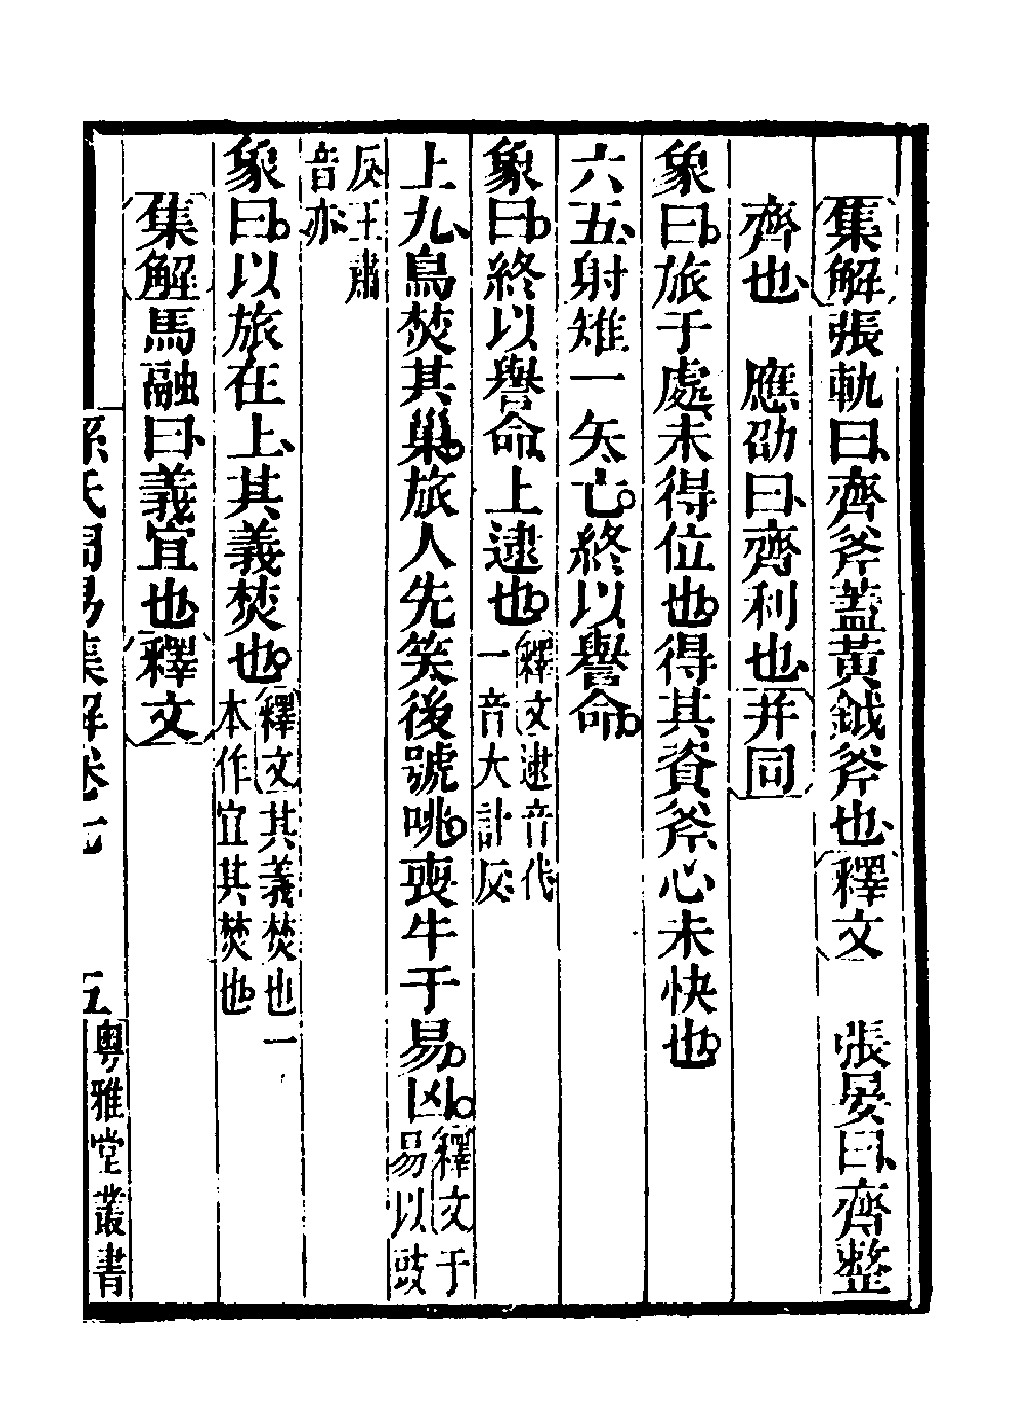 集解張軌曰、齊斧蓋黃鉞斧也、釋文　張晏曰、齊整
齊也、應劭曰、齊利也、并同
象曰。旅于處、未得位也。得其資斧、心未快也。
六五、射雉一矢亡。終以譽命。
象曰。終以譽命、上逮也。釋文逮音代
一音大計反
上九、鳥焚其巢。旅人先笑後號咷。喪牛于易。凶。釋文于
易以豉
反王肅
音亦
象曰。以旅在上、其義焚也。釋文其義焚也一
本作宜其焚也
集解馬融曰、義宜也、釋文
孫氏周易集解卷七
五
粵雅堂叢書